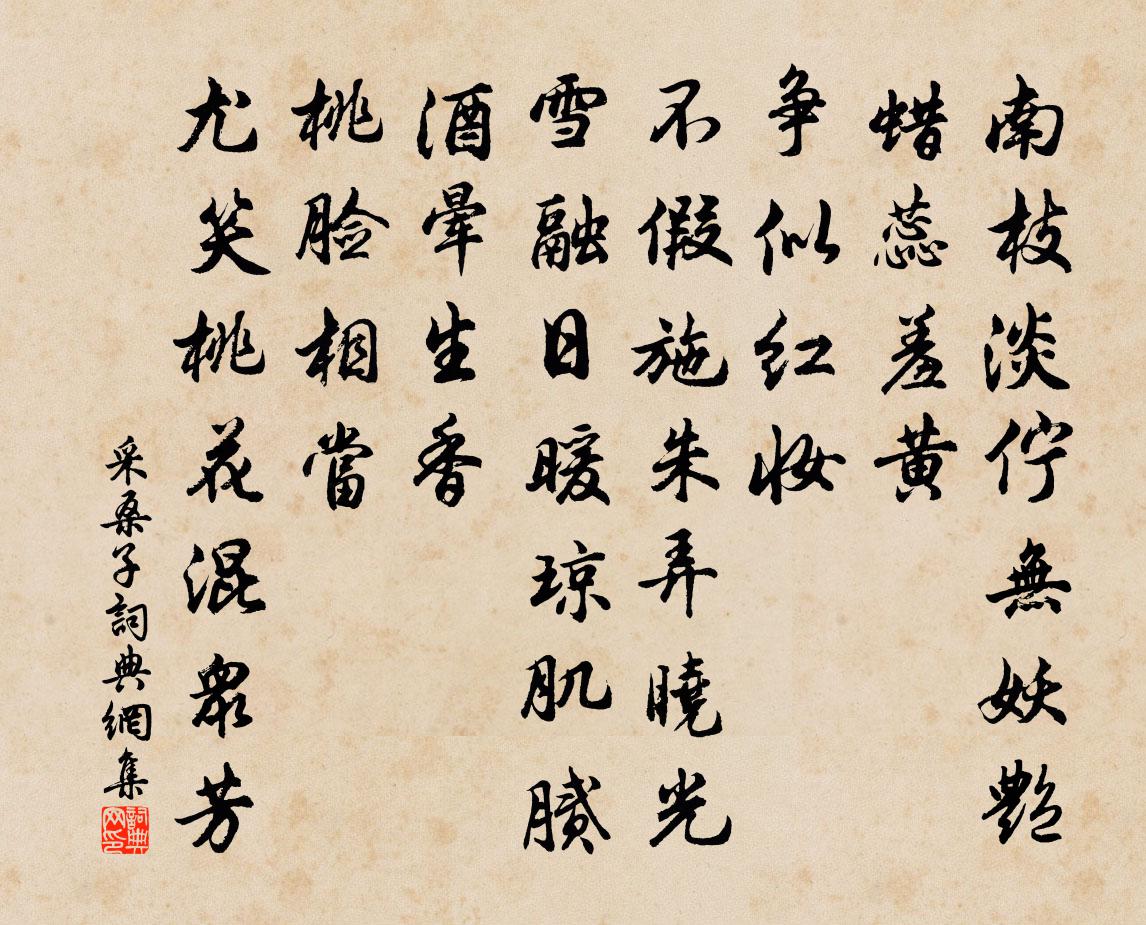 南枝淡佇無妖艶
蜡蕊羞黄
争似红妆
不假施朱弄曉光
雪融日暖琼肌膩
酒暈生香
桃脸相當
尤笑桃花混衆芳
采桑子詞典網集
詞典网印